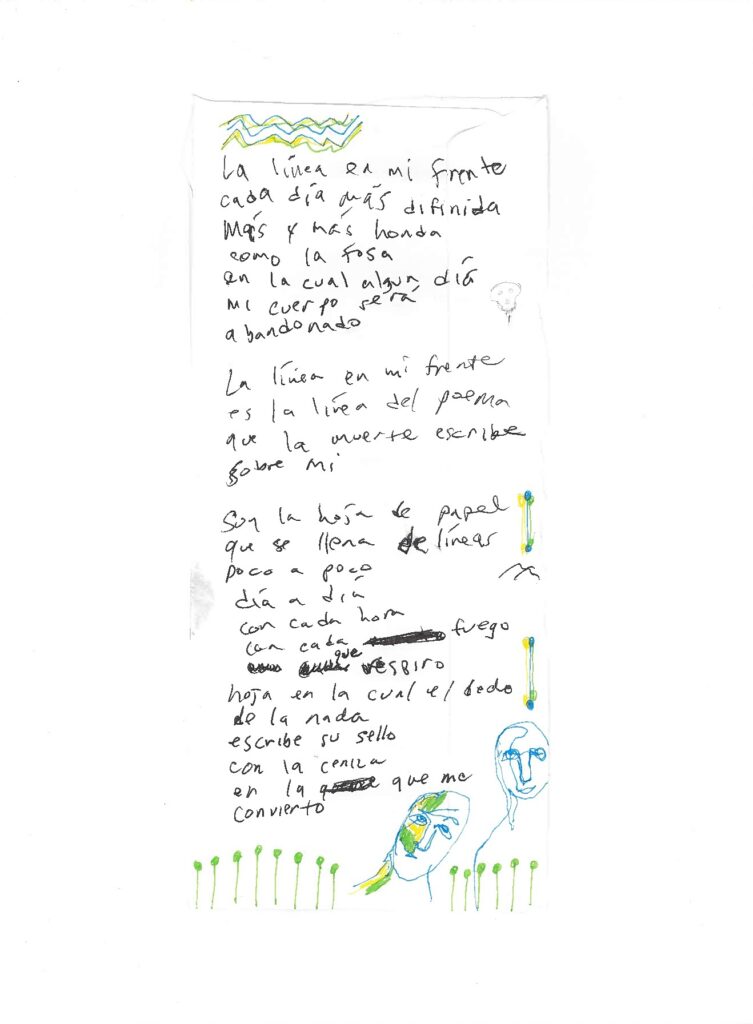 La línea en mi frente
cada día más difinida
Más y más honda
como la fosa
en la cual algun día
mi cuerpo será
abandonado
La línea en mi frente
es la línea del poema
que la muerte escribe
sobre mi
Soy la hoja de papel
que se llena de líneas
poco a poco
día a día
con cada hora
con cada fuego
que respiro
hoja en la cual el dedo
de la nada
escribe su sello
con la ceniza
en la que me
convierto